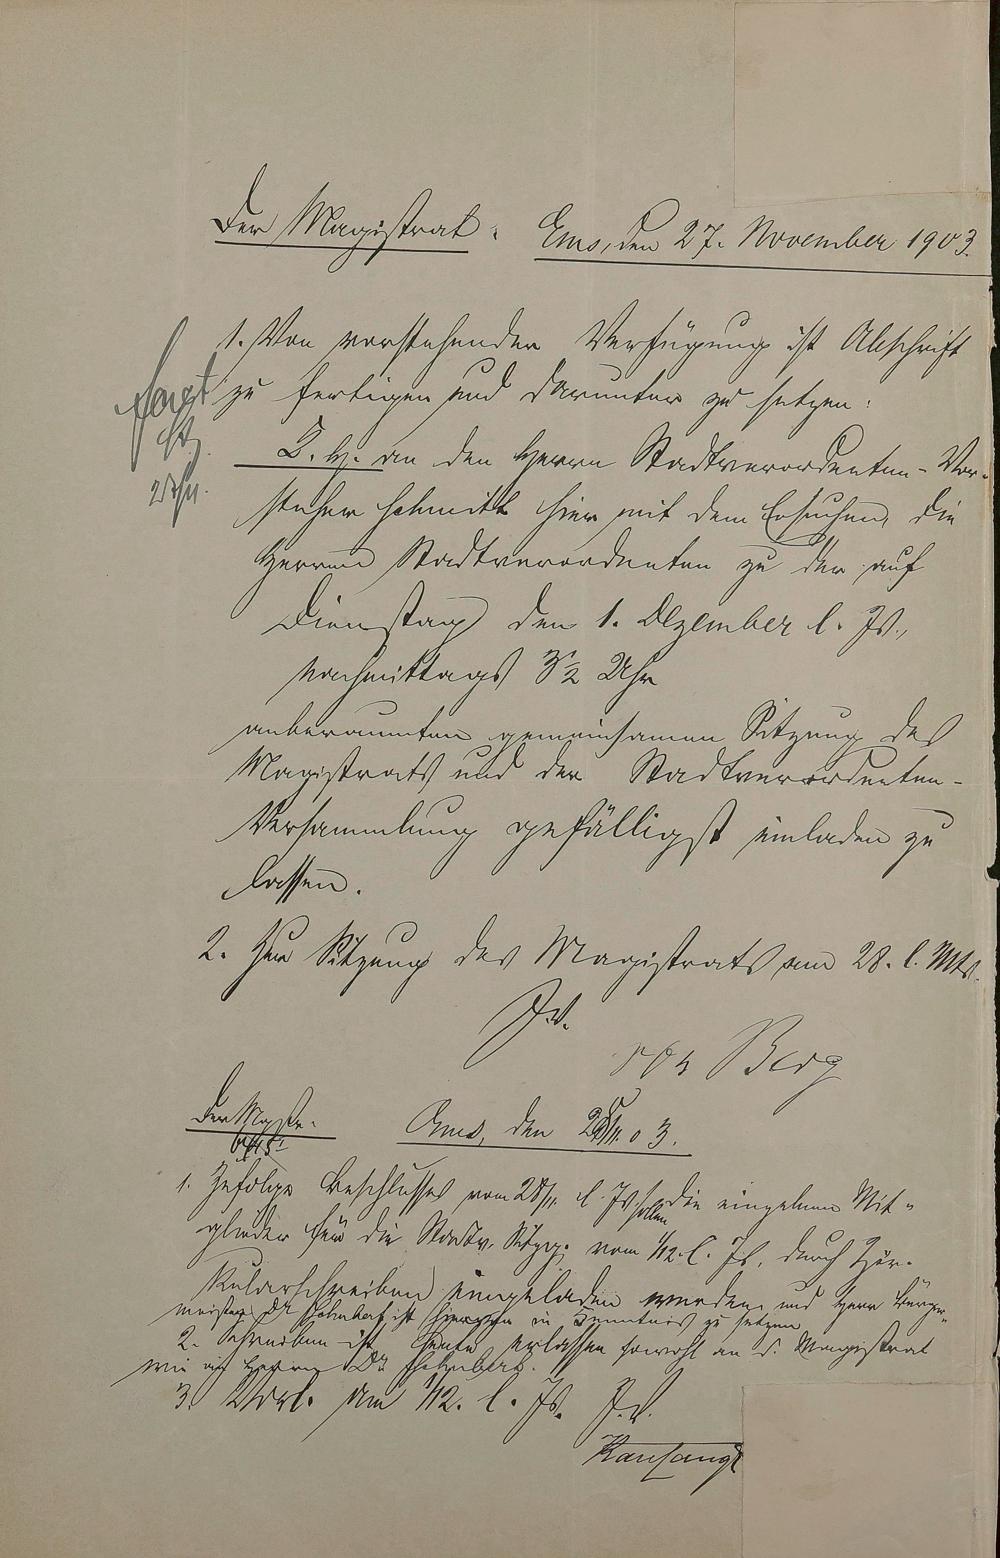 Der Magistrat. Ems, den 27. November 1903.
1. Von vorstehender Verfügung ist Abschrift
zu fertigen und darunter zu setzen:
U. H. an den Herrn Stadtverordneten-Vor-
steher Schmitt hier mit dem Ersuchen, die
Herren Stadtverordneten zu der auf
Dienstag den 1. Dezember l. Js.,
nachmittags 3½ Uhr
anberaumten gemeinsamen Sitzung des
Magistrats und der Stadtverordneten-
Versammlung gefälligst einladen zu
lassen.
2. Zur Sitzung des Magistrats am 28. l. Mts.
J. V.
von Berg
Ems, den 28/11. 03.
1. Zufolge Beschlusses vom 28/11. l. Js. sollen die einzelnen Mit-
glieder für die Stadtv. Sitzg. vom 1/12. l. Js. durch Zir-
kularschreiben eingeladen werden und Herr Bürger-
meister Dr. ist hiervon in Kenntnis zu setzen
2. Schreiben ist heute erlassen sowohl an d. Magistrat
wie an Herrn Dr.
3. am 1/12. l. Js. J. V.